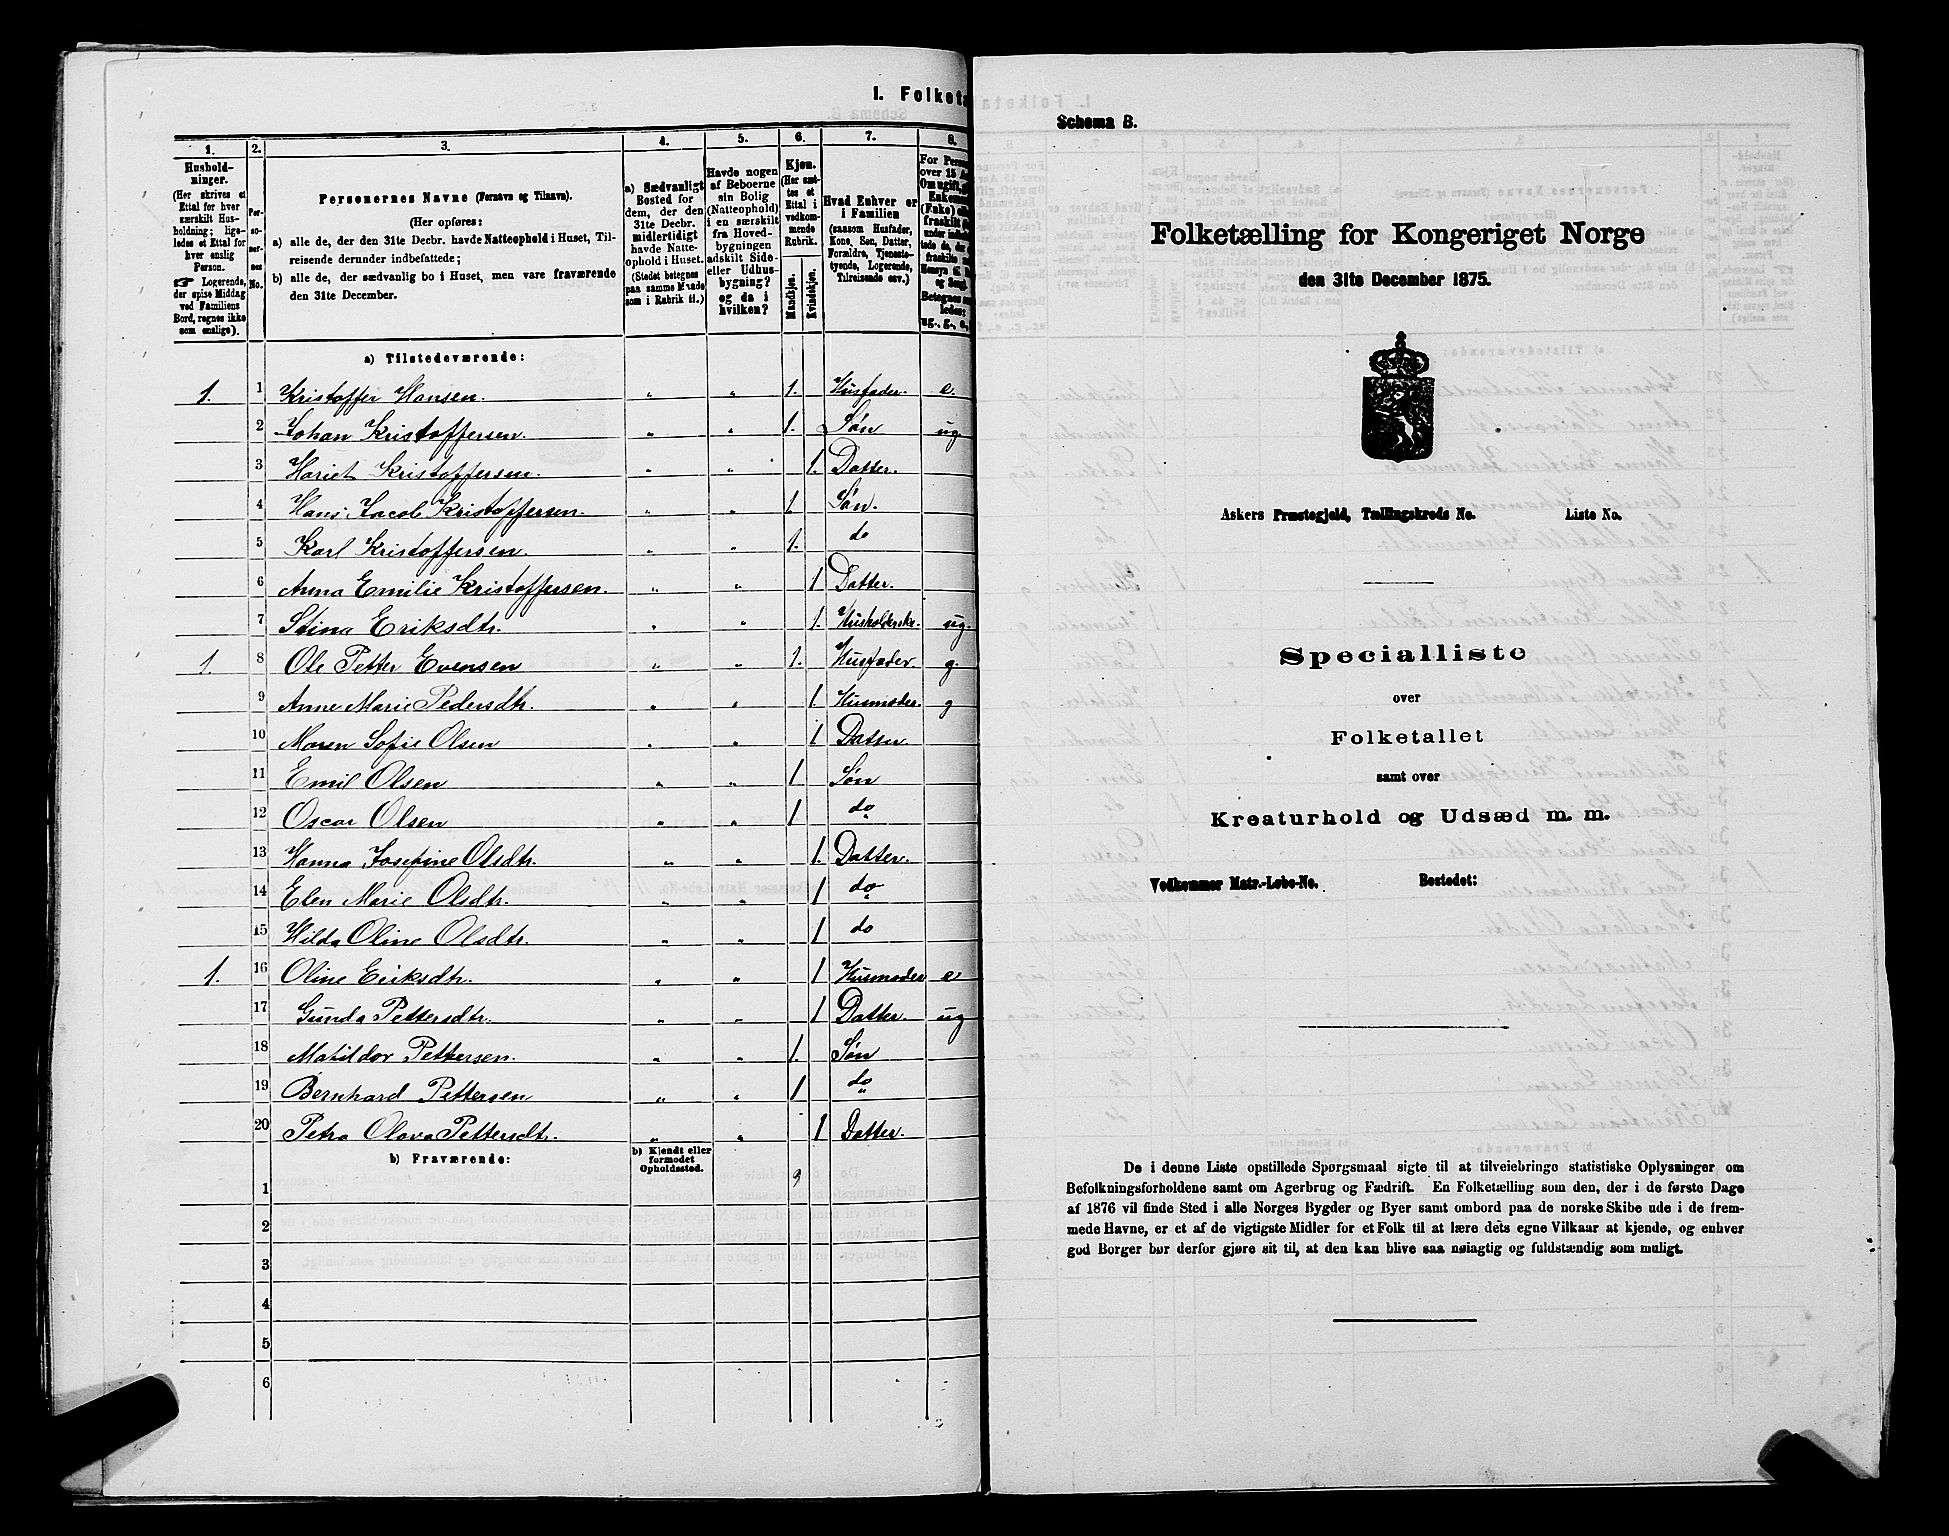 I. Folketa
1.
2.
3.
4.
5.
6.
7.
8.
Hushold-
ninger.
(Her skrives et
Ettal for hver
særskilt Hus-
holdning; lige-
ledes et Ettal for
hver enslig
Person.
Logerende,
der spise Middag
ved Familiens
Bord, regnes ikke
som enslige).
Per-
so-
ner-
nes
No.
Personernes Navne (Fornavn og Tilnavn).
(Her opføres:
a) alle de, der den 31te Decbr. havde Natteophold i Huset, Til-
reisende derunder indbefattede;
b) alle de, der sædvanlig bo i Huset, men vare fraværende
den 31te December.
a) Sædvanligt
Bosted for
dem, der den
31te Decbr.
midlertidigt
havde Natte-
ophold i Huset.
(Stedet betegnes
paa samme Maade
som i Rubrik 11.)
Havde nogen
af Beboerne
sin Bolig
(Natteophold)
i en særskilt
fra Hoved-
bygningen
adskilt Side-
eller Udhus-
bygning?
og da i
hvilken?
Kjøn.
(Her sæt-
tes et
Ettal i
vedkom-
mende
Rubrik.
Mandkjøn.
Kvindekjøn.
Hvad Enhver er
i Familien
(saasom Husfader,
Kone, Søn, Datter,
Forældre, Tjeneste-
tyende, Logerende,
Tilreisende osv.)
For Person
over 15 A
Om ugift,
Enkema
(Enke) el
fraskilt
ug., g., e.,
a) Tilstedeværende:
1. 1 Kristoffer Hansen. „ „ 1. Husfader. e.
2 Johan Kristoffersen. „ „ 1. Søn ug
3 Hariet Kristoffersen. „ „ 1. Datter.
4 Hans Jacob Kristoffersen. „ „ 1 Søn.
5 Karl Kristoffersen „ „ 1. do
6 Anna Emilie Kristoffersen. „ „ 1 Datter.
7 Stina Eriksdtr. „ „ 1. Husholderske. ug.
1. 8 Ole Petter Evensen „ „ 1. Husfader. g.
9 Anne Marie Pedersdtr. „ „ 1. Husmoder. g
10 Maren Sofie Olsen „ „ 1 Datter.
11 Emil Olsen „ „ 1 Søn
12 Oscar Olsen „ „ 1 do
13 Hanna Josefine Olsdtr. „ „ 1. Datter.
14 Elen Marie Olsdtr. „ „ 1 do
15 Hilda Oline Olsdtr. „ „ 1 do
1. 16 Oline Eriksdtr. „ „ 1 Husmoder e
17 Gunda Pettersdtr. „ „ 1 Datter. ug
18 Matildor Pettersen. „ „ 1. Søn
19 Bernhard Pettersen „ „ 1 do
20 Petra Olava Pettersdtr. „ „ 1 Datter.
b) Fraværende:
b) Kjendt eller
formodet
Opholdssted.
9
1
2
3
4
5
6
Schema B.
Folketælling for Kongeriget Norge
den 31te December 1875.
Askers Præstegjeld, Tællingskreds No. Liste No.
Specialliste
over
Folketallet
samt over
Kreaturhold og Udsæd m. m.
Vedkommer Matr.-Løbe-No. Bostedet:
De i denne Liste opstillede Spørgsmaal sigte til at tilveiebringe statistiske Oplysninger om
Befolkningsforholdene samt om Agerbrug og Fædrift. En Folketælling som den, der i de første Dage
af 1876 vil finde Sted i alle Norges Bygder og Byer samt ombord paa de norske Skibe ude i de frem-
mede Havne, er et af de vigtigste Midler for et Folk til at lære dets egne Vilkaar at kjende, og enhver
god Borger bør derfor gjøre sit til, at den kan blive saa nøiagtig og fuldstændig som muligt.